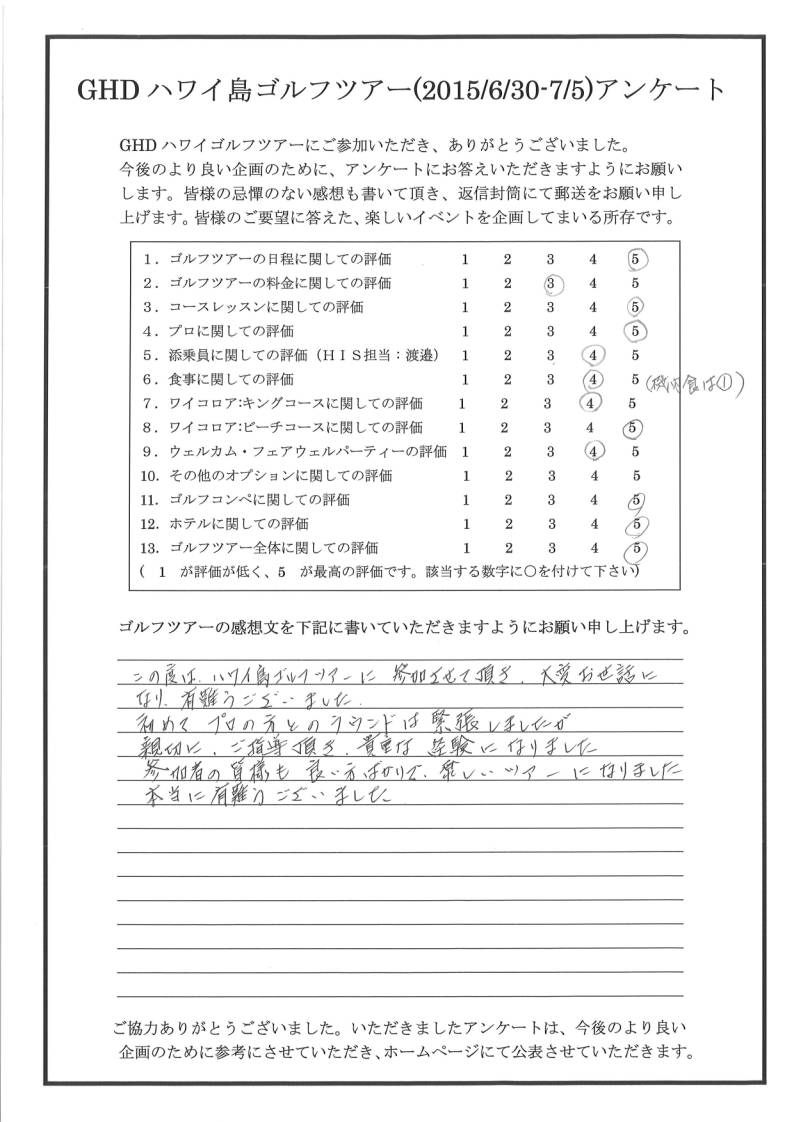 GHD ハワイ島ゴルフツアー(2015/6/30-7/5)アンケート
GHD ハワイゴルフツアーにご参加いただき、ありがとうございました。
今後のより良い企画のために、アンケートにお答えいただきますようにお願い
します。皆様の忌憚のない感想も書いて頂き、返信封筒にて郵送をお願い申し
上げます。皆様のご要望に答えた、楽しいイベントを企画してまいる所存です。
1．ゴルフツアーの日程に関しての評価 1 2 3 4 5
2．ゴルフツアーの料金に関しての評価 1 2 3 4 5
3．コースレッスンに関しての評価 1 2 3 4 5
4．プロに関しての評価 1 2 3 4 5
5．添乗員に関しての評価（ＨＩＳ担当：渡邉） 1 2 3 4 5
6．食事に関しての評価 1 2 3 4 5 (機内食は①)
7．ワイコロア:キングコースに関しての評価 1 2 3 4 5
8．ワイコロア:ビーチコースに関しての評価 1 2 3 4 5
9．ウェルカム・フェアウェルパーティーの評価 1 2 3 4 5
10．その他のオプションに関しての評価 1 2 3 4 5
11．ゴルフコンペに関しての評価 1 2 3 4 5
12．ホテルに関しての評価 1 2 3 4 5
13．ゴルフツアー全体に関しての評価 1 2 3 4 5
(　1　が評価が低く、5　が最高の評価です。該当する数字に○を付けて下さい)
ゴルフツアーの感想文を下記に書いていただきますようにお願い申し上げます。
この度は、ハワイ島ゴルフツアーに 参加させて頂き、大変お世話に
なり、有難うございました。
初めて プロの方とのラウンドは 緊張しましたが
親切に、ご指導頂き、貴重な 経験になりました
参加者の皆様も 良い方ばかりで、楽しいツアーになりました
本当に有難うございました。
ご協力ありがとうございました。いただきましたアンケートは、今後のより良い
企画のために参考にさせていただき、ホームページにて公表させていただきます。